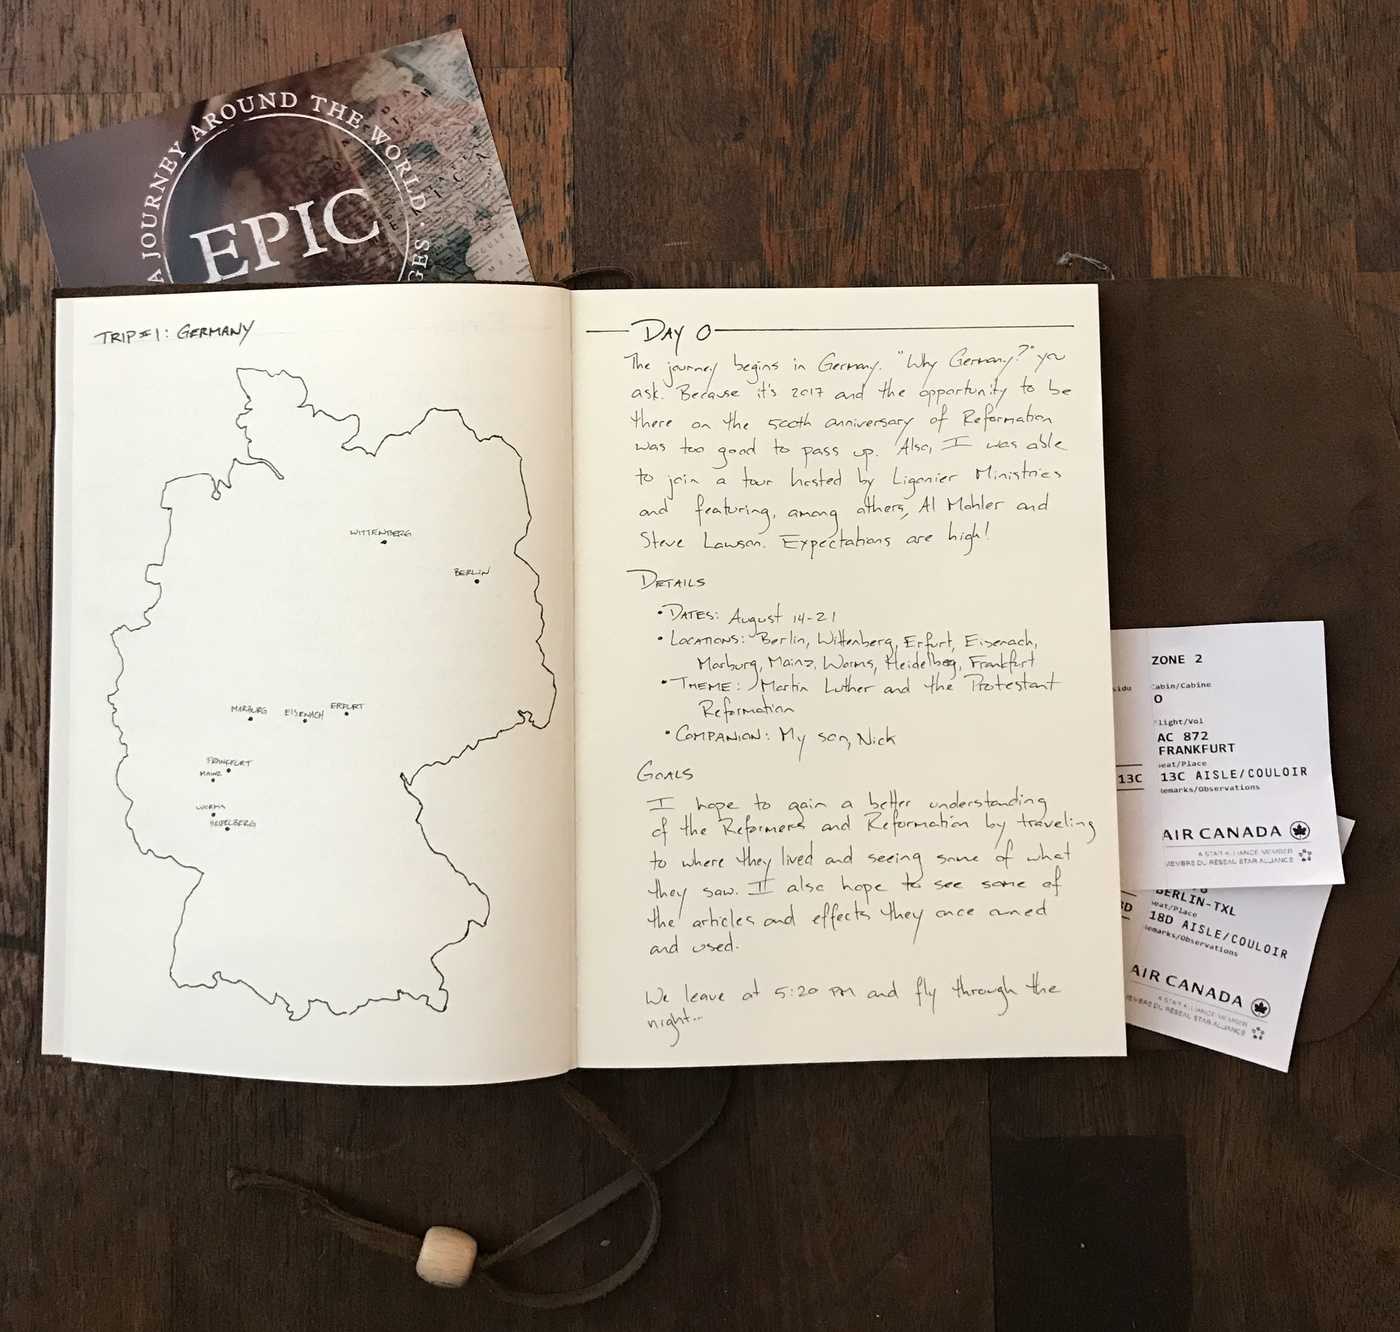 A JOURNEY AROUND THE WORLD ·
EPIC
GES
TRIP #1: GERMANY
WITTENBERG
BERLIN
MARBURG
EISENACH
ERFURT
FRANKFURT
MAINZ
WORMS
HEIDELBERG
DAY 0
The journey begins in Germany. "Why Germany?" you
ask. Because it's 2017 and the opportunity to be
there on the 500th anniversary of Reformation
was too good to pass up. Also, I was able
to join a tour hosted by Ligonier Ministries
and featuring, among others, Al Mohler and
Steve Lawson. Expectations are high!
DETAILS
• DATES: August 14-21
• LOCATIONS: Berlin, Wittenberg, Erfurt, Eisenach,
Marburg, Mainz, Worms, Heidelberg, Frankfurt
• THEME: Martin Luther and the Protestant
Reformation
• COMPANION: My son, Nick
GOALS
I hope to gain a better understanding
of the Reformers and Reformation by traveling
to where they lived and seeing some of what
they saw. I also hope to see some of
the articles and effects they once owned
and used.
We leave at 5:20 PM and fly through the
night...
ZONE 2
Cabin/Cabine
O
light/Vol
AC 872
FRANKFURT
eat/Place
13C
13C AISLE/COULOIR
emarks/Observations
AIR CANADA
A STAR ALLIANCE MEMBER
MEMBRE DU RÉSEAU STAR ALLIANCE
BERLIN-TXL
eat/Place
18D AISLE/COULOIR
emarks/Observations
AIR CANADA
A STAR ALLIANCE MEMBER
MEMBRE DU RÉSEAU STAR ALLIANCE